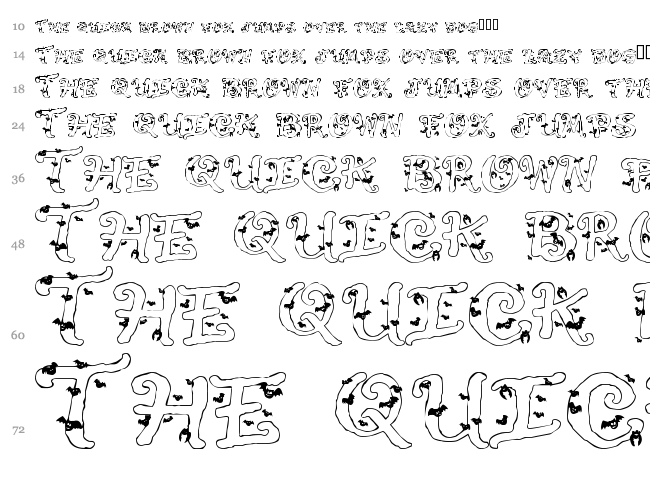 10 THE QUICK BROWN FOX JUMPS OVER THE LAZY DOG□□□
14 THE QUICK BROWN FOX JUMPS OVER THE LAZY DOG□□
18 THE QUICK BROWN FOX JUMPS OVER TH
24 THE QUICK BROWN FOX JUMPS
36 THE QUICK BROWN F
48 THE QUICK BRO
60 THE QUICK B
72 THE QUIC